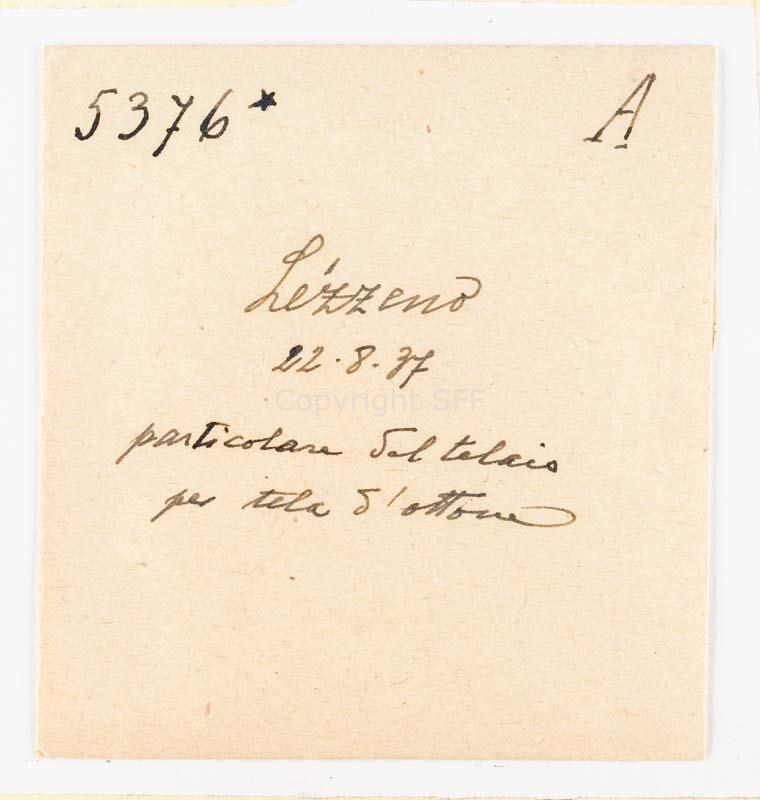 5376* A
Lézzeno
22.8.37
Copyright SFF
particolare del telaio
per tela d'ottone